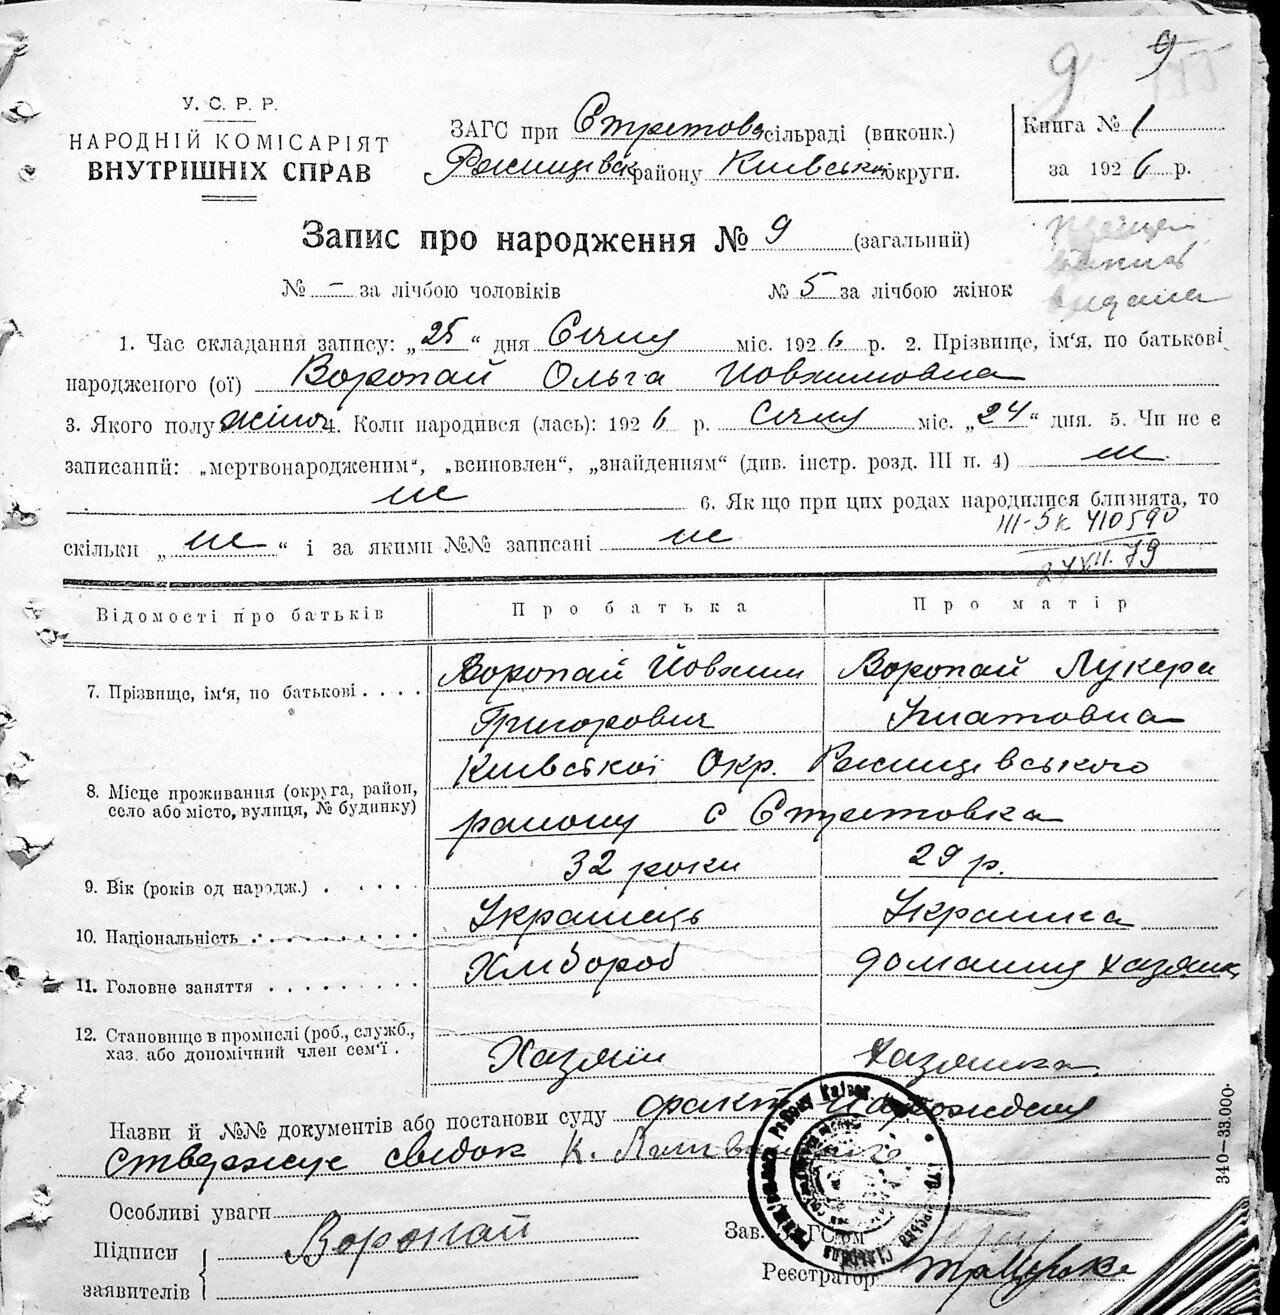 9 9
У. С. Р. Р.
НАРОДНІЙ КОМІСАРІЯТ
ВНУТРІШНІХ СПРАВ
ЗАГС при Стретовс сільраді (виконк.)
Ржищевськ району Київськ округи.
Книга № 1
за 1926 р.
Запис про народження № 9 (загальний)
№ - за лічбою чоловіків № 5 за лічбою жінок
видана
1. Час складання запису: „25" дня Січня міс. 1926 р. 2. Прізвище, ім'я, по батькові
народженого (ої) Воропай Ольга Йовхимовна
3. Якого полу жіноч 4. Коли народився (лась): 1926 р. Січня міс. „24" дня. 5. Чи не є
записаний: „мертвонародженим", „всиновлен", „знайденням" (див. інстр. розд. III п. 4) ні
ні 6. Як що при цих родах народилися близнята, то
скільки „ні" і за якими №№ записані ні
III-БК 410590
27 VII. 79
Відомості про батьків Про батька Про матір
7. Прізвище, ім'я, по батькові Воропай Йовхим Воропай Лукера
Григорович Гнатовна
8. Місце проживання (округа, район, село або місто, вулиця, № будинку) Київської Окр. Ржищевського
району с Стретовка
9. Вік (років од народж.) 32 роки 29 р.
10. Національність Українець Українка
11. Головне заняття Хлібороб домашня хазяйка
12. Становище в промислі (роб., служб., хаз. або допомічний член сем'ї Хазяїн Хазяйка
Назви й №№ документів або постанови суду факт народження
стверджує свідок К.
Особливі уваги
Підписи заявителів Воропай
Зав. ЗАГСом
Реєстратор
340—33.000.